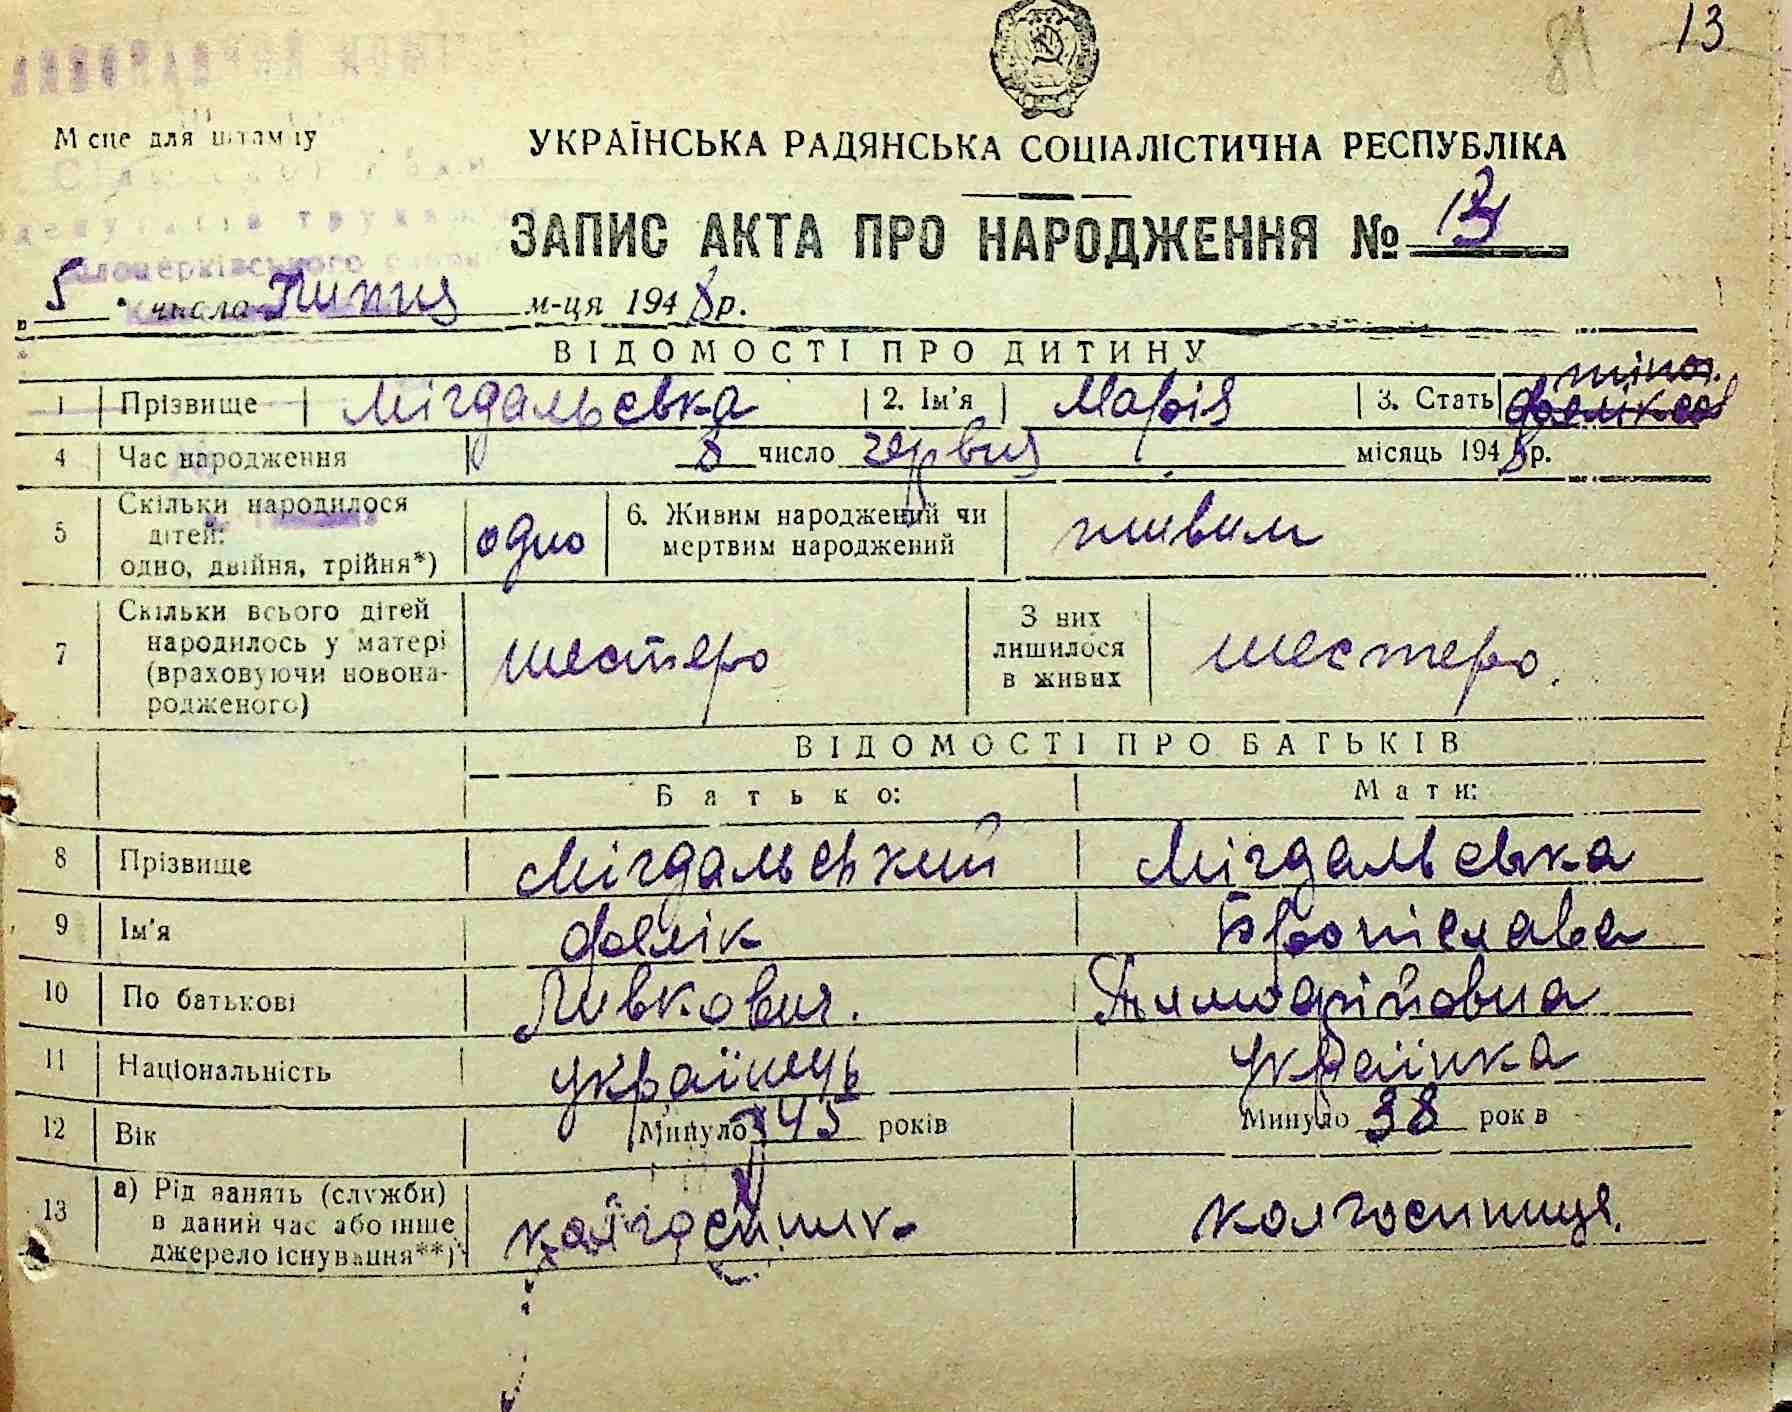 13
81
Місце для штампу
УКРАЇНСЬКА РАДЯНСЬКА СОЦІАЛІСТИЧНА РЕСПУБЛІКА
ЗАПИС АКТА ПРО НАРОДЖЕННЯ № 13
депутатів трудящих
Білоцерківського
„5" числа Липня м-ця 1948 р.
ВІДОМОСТІ ПРО ДИТИНУ
1 Прізвище Мігдальська 2. Ім'я Марія 3. Стать жіноч.
4 Час народження 8 число червня місяць 1948 р.
5 Скільки народилося дітей: одно, двійня, трійня*) одно 6. Живим народжений чи мертвим народжений живим
7 Скільки всього дітей народилось у матері (враховуючи новонародженого) шестеро З них лишилося в живих шестеро.
ВІДОМОСТІ ПРО БАТЬКІВ
Батько: Мати:
8 Прізвище Мігдальський Мігдальська
9 Ім'я Фелік Броніслава
10 По батькові
11 Національність українець українка
12 Вік Минуло 45 років Минуло 38 років
13 а) Рід занять (служби) в даний час або інше джерело існування**) колгоспник колгоспниця.